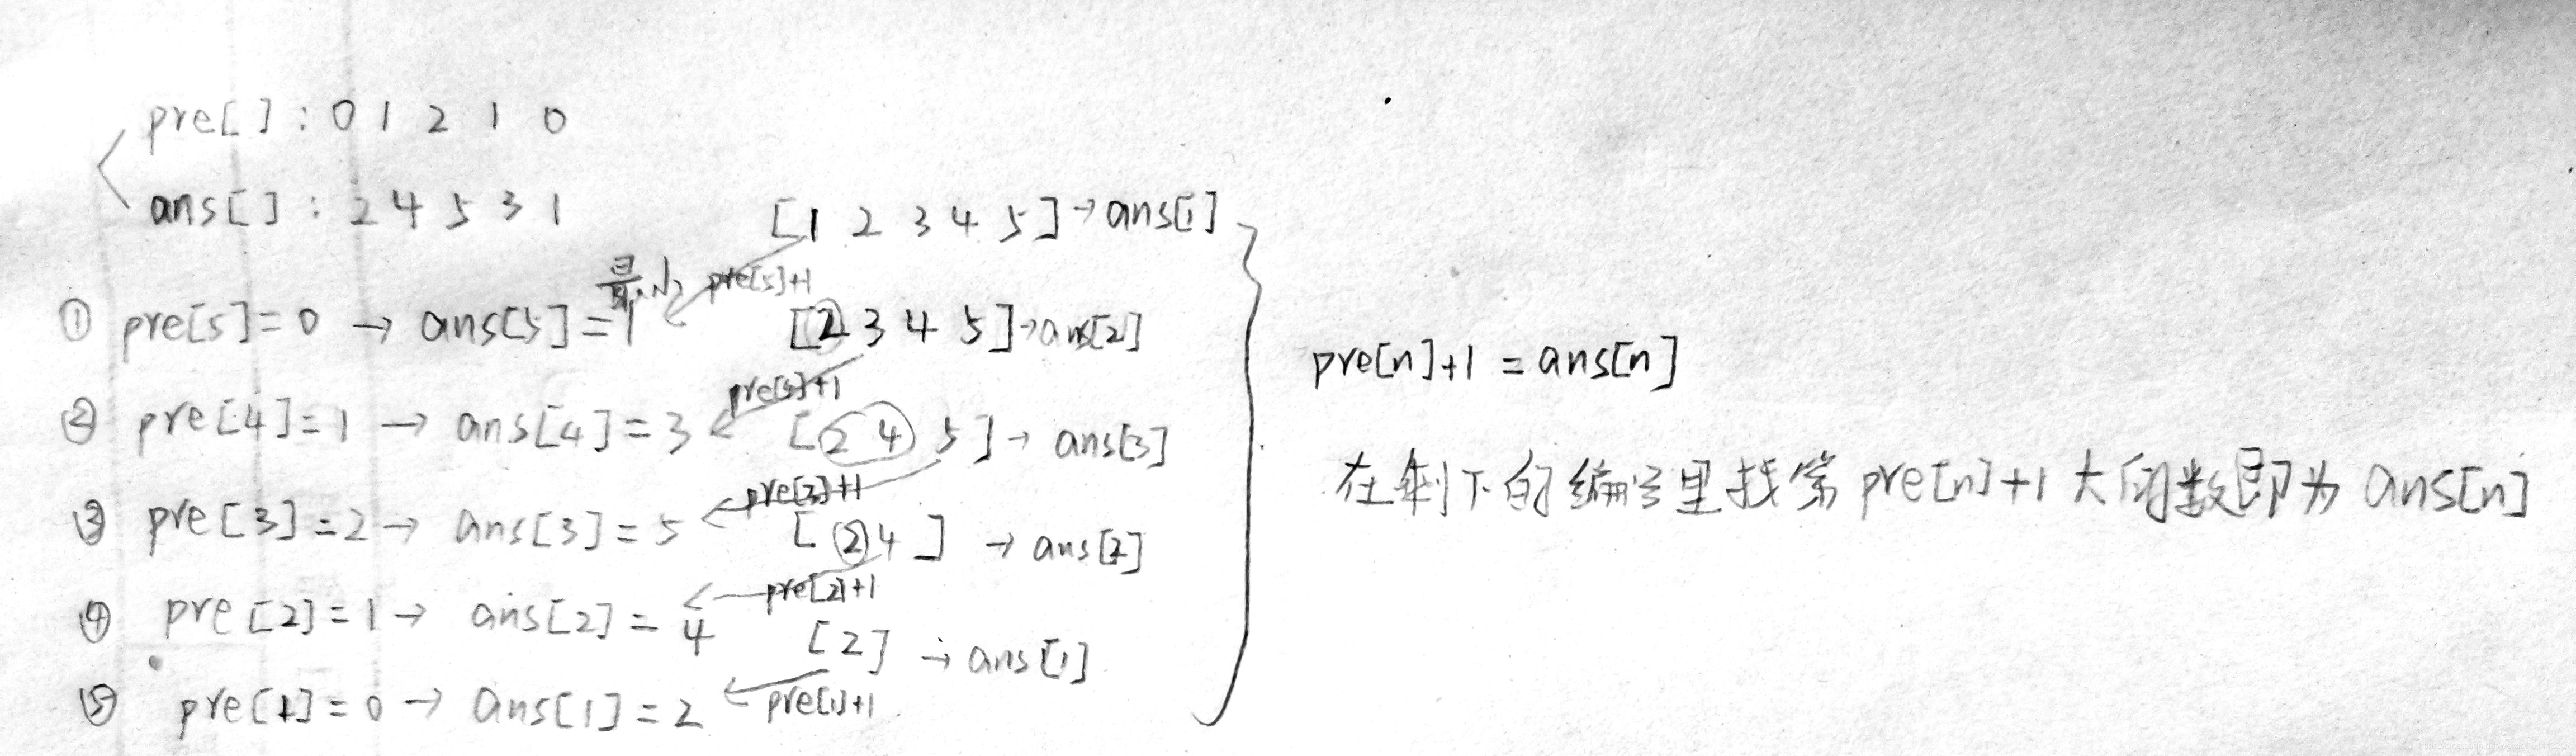 pre[ ] : 0 1 2 1 0
ans[ ] : 2 4 5 3 1
[1 2 3 4 5] → ans[1]
最小 pre[5]+1
① pre[5]=0 → ans[5]=1
[2 3 4 5] → ans[2]
pre[4]+1
② pre[4]=1 → ans[4]=3
[2 4 5] → ans[3]
pre[3]+1
③ pre[3]=2 → ans[3]=5
[2 4] → ans[2]
pre[2]+1
④ pre[2]=1 → ans[2]=4
[2] → ans[1]
pre[1]+1
⑤ pre[1]=0 → ans[1]=2
pre[n]+1 = ans[n]
在剩下的编号里找第 pre[n]+1 大的数即为 ans[n]